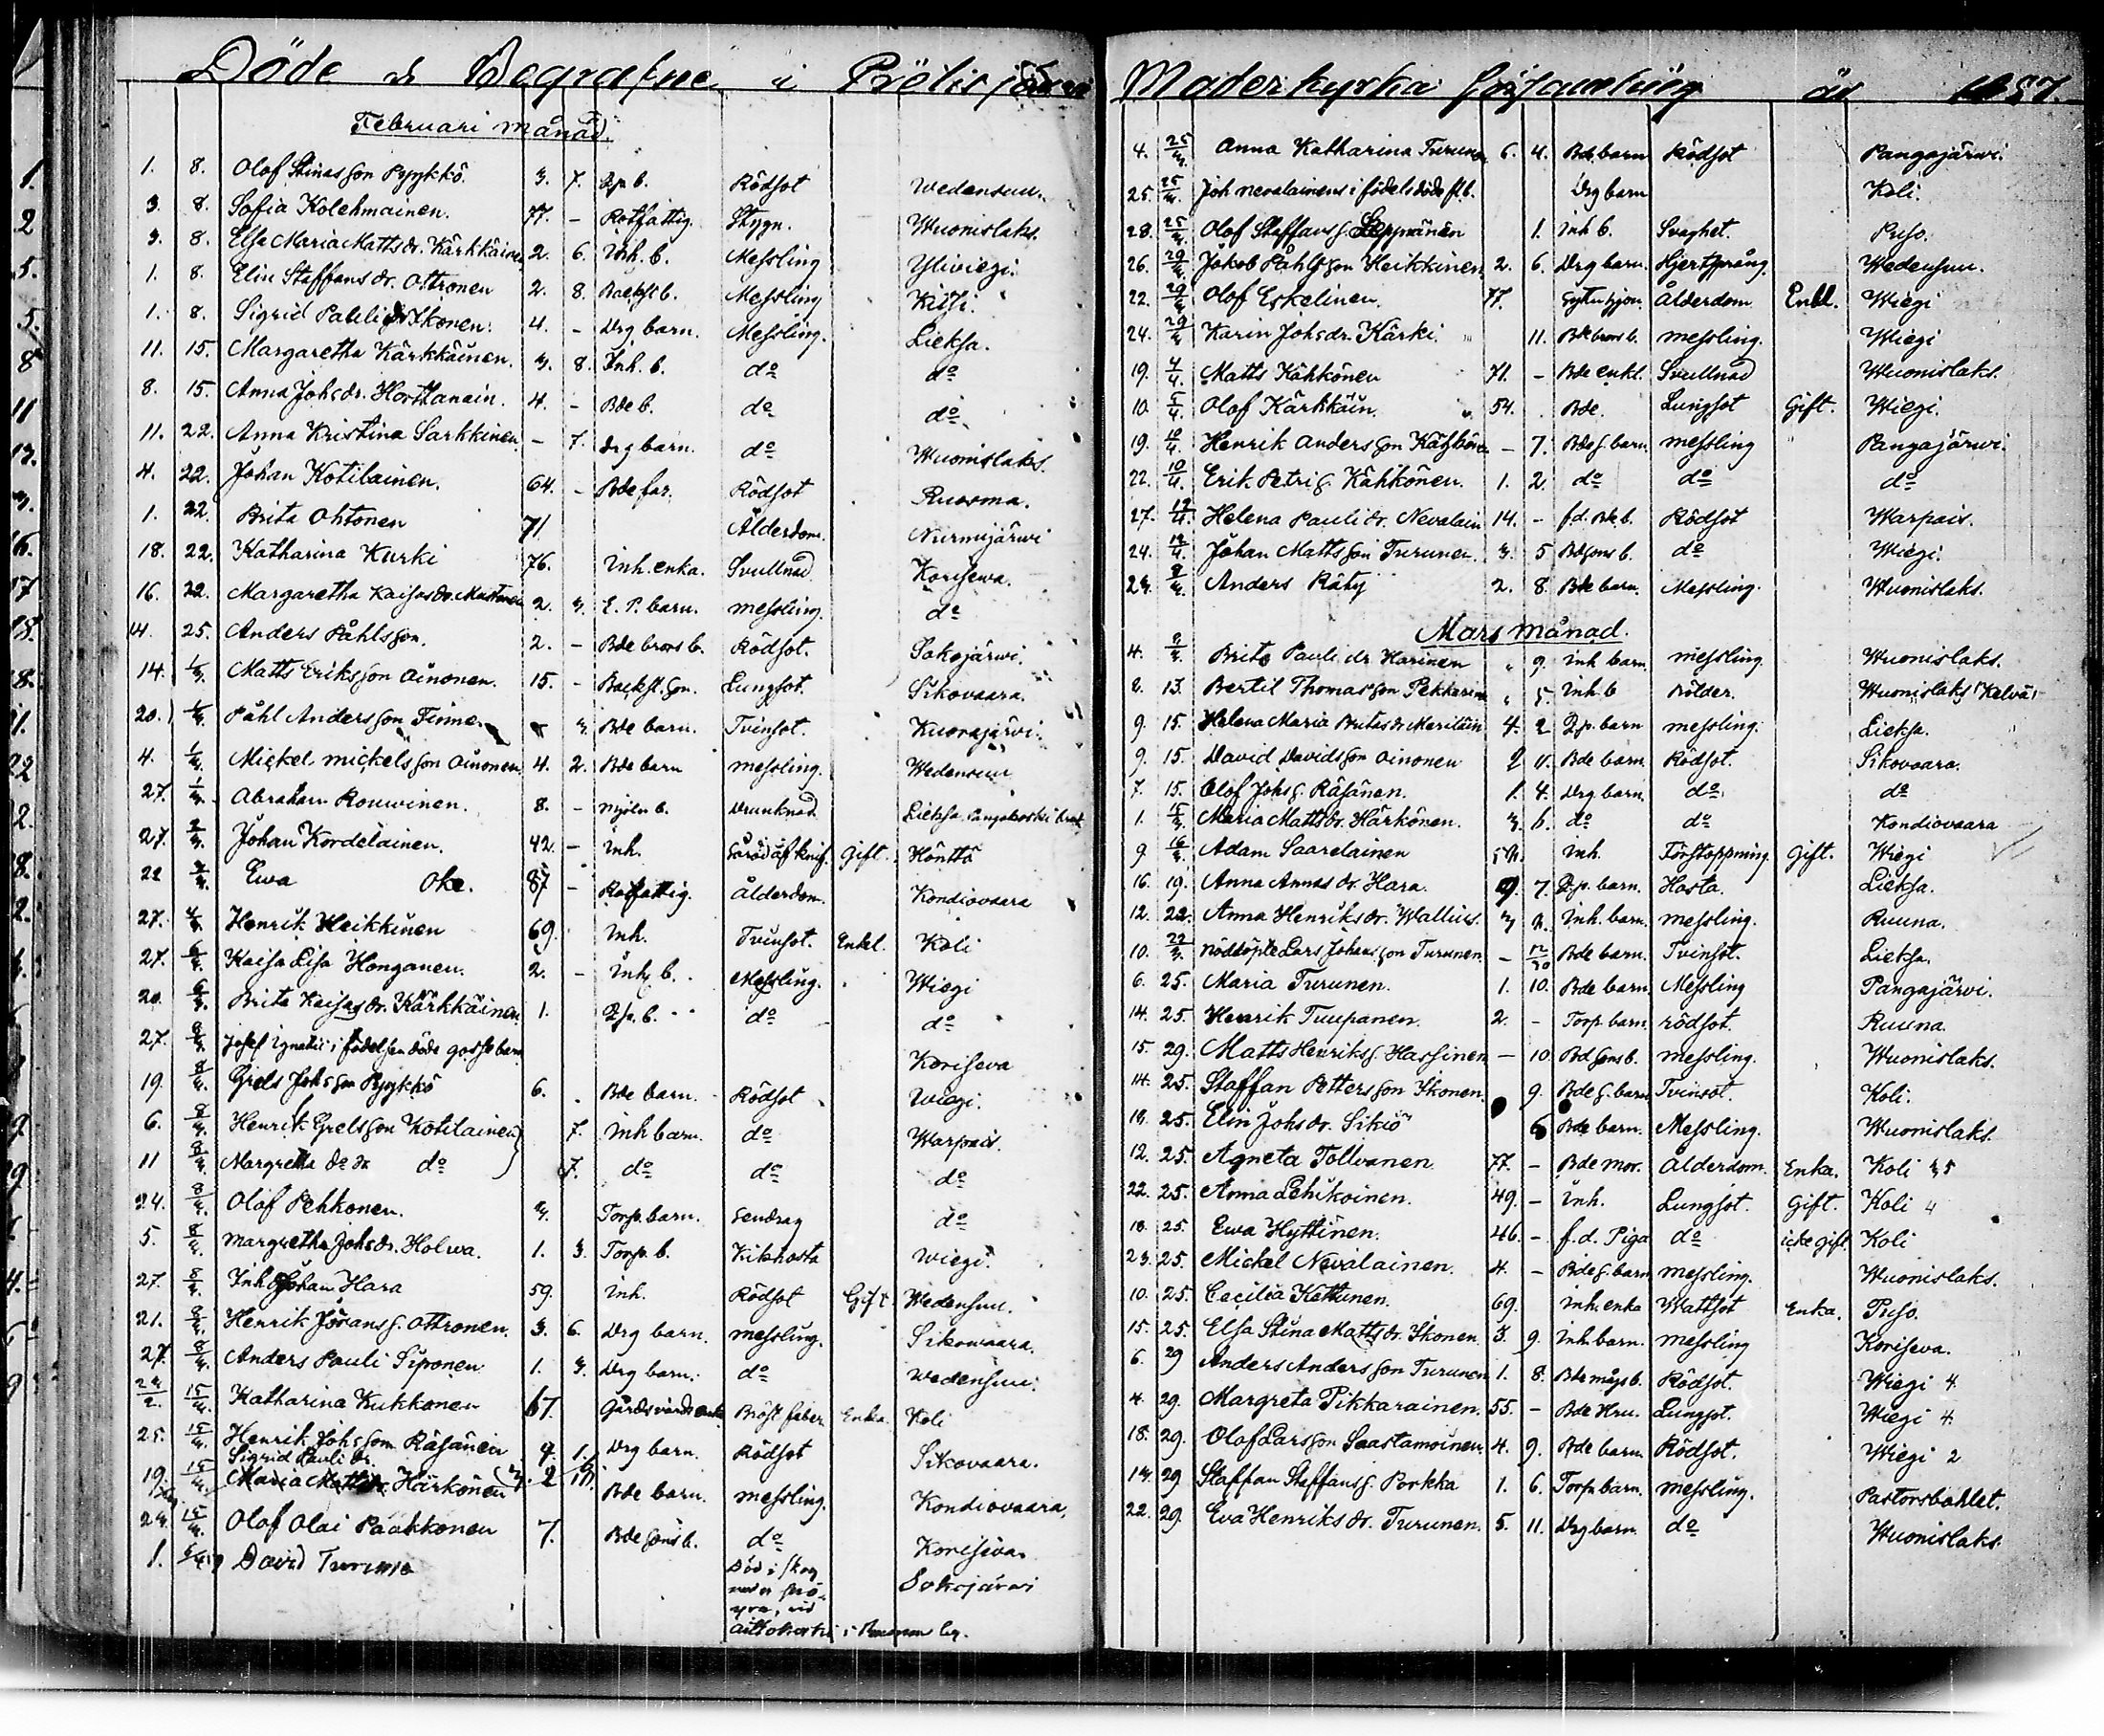 Döde & Begrafne i Pielisjärvi
Februari månad.
1. 8. Olof Stinasson Pyykkö. 3. 7. b. Rödsot Wedensuu.
3. 8. Sofia Kolehmainen. 77. - Rotfattig. Stygn. Wuonislaks.
3. 8. Elsa Maria Mattsdr. Kärkkäinen 2. 6. Inh. b. Messling Yliviegi.
1. 8. Elin Staffansdr. Ottronen 2. 8. Backst b. Messling Kitsi.
1. 8. Sigrid Paulidr Ikonen. 4. - Drg barn. Messling. Lieksa.
11. 15. Margaretha Kärkkäinen. 3. 8. Inh. b. do do
8. 15. Anna Johsdr. Horttanain. 4. - Bde b. do do
11. 22. Anna Kristina Sarkkinen - 7. Drg barn. do Wuonislaks.
4. 22. Johan Kotilainen. 64. - Bde far. Rödsot Ruosma.
1. 22. Brita Ohtonen 71 Ålderdom. Nurmijärwi
18. 22. Katharina Kurki 76. Inh. enka. Svullnad Korisewa.
16. 22. Margaretha Kaisasdr. 2. 3. E. P. barn. messling. do
14. 25. Anders Påhlsson. 2. - Bde brors b. Rödsot. Sokojärwi.
14. 1/3. Matts Eriksson Ainonen. 15. - Backst. son. Lungsot. Sikovaara.
20. 1/3. Påhl Andersson Tinne 3. Bde barn. Tvinsot. Kuorajärvi.
4. 1/3. Mickel mickelsson Ainonen 4. 2. Bde barn messling. Wedensuu
27. 1/3. Abraham Rouwinen. 8. - mjöln b. Drunknad. Lieksa Pangakoski
27. 2/3. Johan Kordelainen. 42. - Inh. Sårad af knif. Gift. Hönttä
22 2/3. Ewa Oke. 87 - Rotfattig. Ålderdom. Kondiovaara
27. 4/3. Henrik Heikkinen 69. Inh. Tvinsot. Enkl. Koli
27. 6/3. Kaisa Lisa Honganen. 2. - Inh b. Messling. Wiegi
20. 6/3. Brita Kaisasdr. Kärkkäinen. 1. b. do do
27. 8/3. Josef Ignatii i födelsen döde gosse barn Korisewa
19. 8/3. Grels Johsson Pyykkö 6. Bde barn. Rödsot Wiegi.
6. 8/3. Henrik Grelsson Kotilainen 7. Inh barn. do Warpais.
11 8/3. Margretha do dr do 7. do do do
24. 8/3. Olof Pehkonen. 3. Torp. barn. Sendrag do
5. 8/3. Margretha Johsdr. Holwa. 1. 3. Torp. b. Kikhosta Wiegi.
27. 8/3. Inh Johan Hara 59. Inh. Rödsot Gift. Wedensuu.
21. 8/3. Henrik Göranss. Ottronen. 3. 6. Drg barn. messling. Sikovaara.
27. 8/3. Anders Pauli Siponen 1. 3. Drg barn. do Wedensuu.
24/2. 15/3. Katharina Kukkonen 67. Gårdsvärds enka Bröst feber Enka. Koli
25. 15/3. Henrik Johsson Räsänen 4. 1. Drg barn. Rödsot Sikovaara.
Sigrid Paulidr.
19. 15/3. Maria Mattsdr. Härkönen 2 Bde barn. messling. Kondiovaara.
24. 15/3. Olof Olai Paakkonen 7. Bde sons b. do Korisewa.
1. David Turunen Död i skog Sokojärwi

Moderkyrko församling år 1857.
4. 25/3. Anna Katharina Turunen 6. 4. Bde barn Rödsot Pangajärwi.
25. 25/3. Joh Nevalainens i födels döde fl b. Drg barn Koli.
28. 25/3. Olof Staffanss. Leppänen 1. Inh b. Svaghet. Puso.
26. 29/3. Jakob Påhlsson Heikkinen 2. 6. Drg barn. Hjertsprång. Wedensuu.
22. 29/3. Olof Eskelinen. 77. Sytn hjon. Ålderdom Enkl. Wiegi
24. 29/3. Karin Johsdr. Kärki. 11. Bde brors b. messling. Wiegi
19. 4/4. Matts Kähkönen 71. - Bde enkl. Svullnad Wuonislaks.
10. 5/4. Olof Kärkkäin. 54. Bde. Lungsot Gift. Wiegi.
19. 10/4. Henrik Andersson Kähkön - 7. Bde s. barn messling Pangajärwi.
22. 10/4. Erik Petris. Kähkönen. 1. 2. do do do
27. 12/4. Helena Paulidr. Nevalain 14. - f.d. Bde b. Rödsot Warpais.
24. 12/4. Johan Mattsson Turunen. 3. 5 Bde sons b. do Wiegi.
23. 8/3. Anders Räty 2. 8. Bde barn. Messling. Wuonislaks.
Mars månad.
4. 8/3. Brita Pauli dr Karinen " 9. Inh barn. messling. Wuonislaks.
2. 13. Bertil Thomasson Pekkarin " 5. Inh. b Bölder. Wuonislaks (Kelvä)
9. 15. Helena Maria Britasdr Meriläin 4. 2 barn messling. Lieksa.
9. 15. David Davidsson Ainonen 2 11. Bde barn. Rödsot. Sikovaara.
7. 15. Olof Johss. Räsänen. 1. 4. Drg barn. do do
1. 15/3. Maria Mattsdr. Härkönen. 3. 6. do do Kondiovaara
9. 16/3. Adam Saarelainen 54. Inh. Förstoppning. Gift. Wiegi
16. 19. Anna Annas dr. Hara. 9. 7. barn. Hosta. Lieksa.
12. 22. Anna Henriksdr. Wallius. 3 Inh. barn. messling. Ruuna.
10. 22/3. Nöddöpte Lars Johansson Turunen - 12/30 Bde barn. Tvinsot. Lieksa.
6. 25. Maria Turunen. 1. 10. Bde barn. Messling Pangajärvi.
14. 25. Henrik Tuupanen. 2. - Torp. barn. rödsot. Ruuna.
15. 29. Matts Henrikss. Hassinen - 10. Bd sons b. messling. Wuonislaks.
14. 25. Staffan Pettersson Ikonen. 9. Bde s. barn Tvinsot. Koli.
18. 25. Elin Johsdr. Sikiö 6 Bde barn. Messling. Wuonislaks.
12. 25. Agneta Tollvanen 77. - Bde mor. Ålderdom. Enka. Koli 35
22. 25. Anna Lehikoinen. 49. - Inh. Lungsot. Gift. Koli 4
18. 25. Ewa Hyttinen. 46. - f.d. Piga do icke gift Koli
23. 25. Mickel Nevalainen. 4. - Bde s. barn messling. Wuonislaks.
10. 25. Cecilia Kettunen. 69. Inh. enka Wattsot Enka. Puso.
15. 25. Elsa Stina Mattsdr. Ikonen 3. 9. Inh. barn. messling Korisewa.
6. 29 Anders Andersson Turunen 1. 8. Bde mågs b. Rödsot. Wiegi 4
4. 29. Margreta Pikkarainen. 55. - Bde Hru. Lungsot. Wiegi 4
18. 29. Olof Larsson Saastamoinen 4. 9. Bde barn Rödsot. Wiegi 2
14. 29 Staffan Staffanss. Porkka 1. 6. Torp barn. messling. Pastorsbohlet.
22. 29. Eva Henriksdr. Turunen. 5. 11. Drg barn. do Wuonislaks.